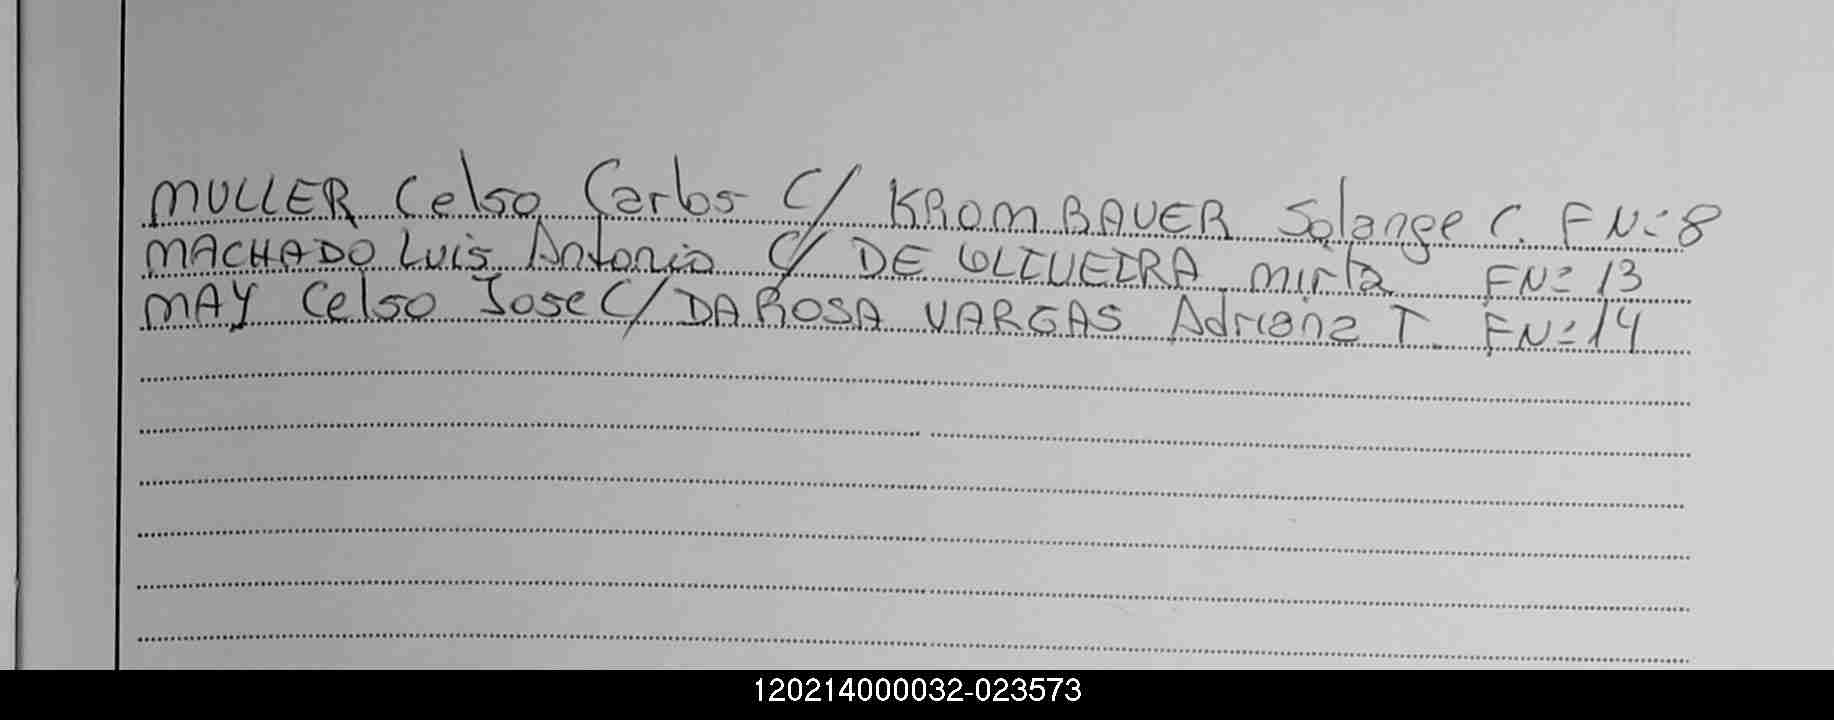 MULLER Celso Carlos C/ KROMBAUER Solange C. FN=8
MACHADO Luis Antonio C/ DE OLIVEIRA mirta FN=13
MAY Celso Jose C/ DA ROSA VARGAS Adriana T. FN=14
120214000032-023573